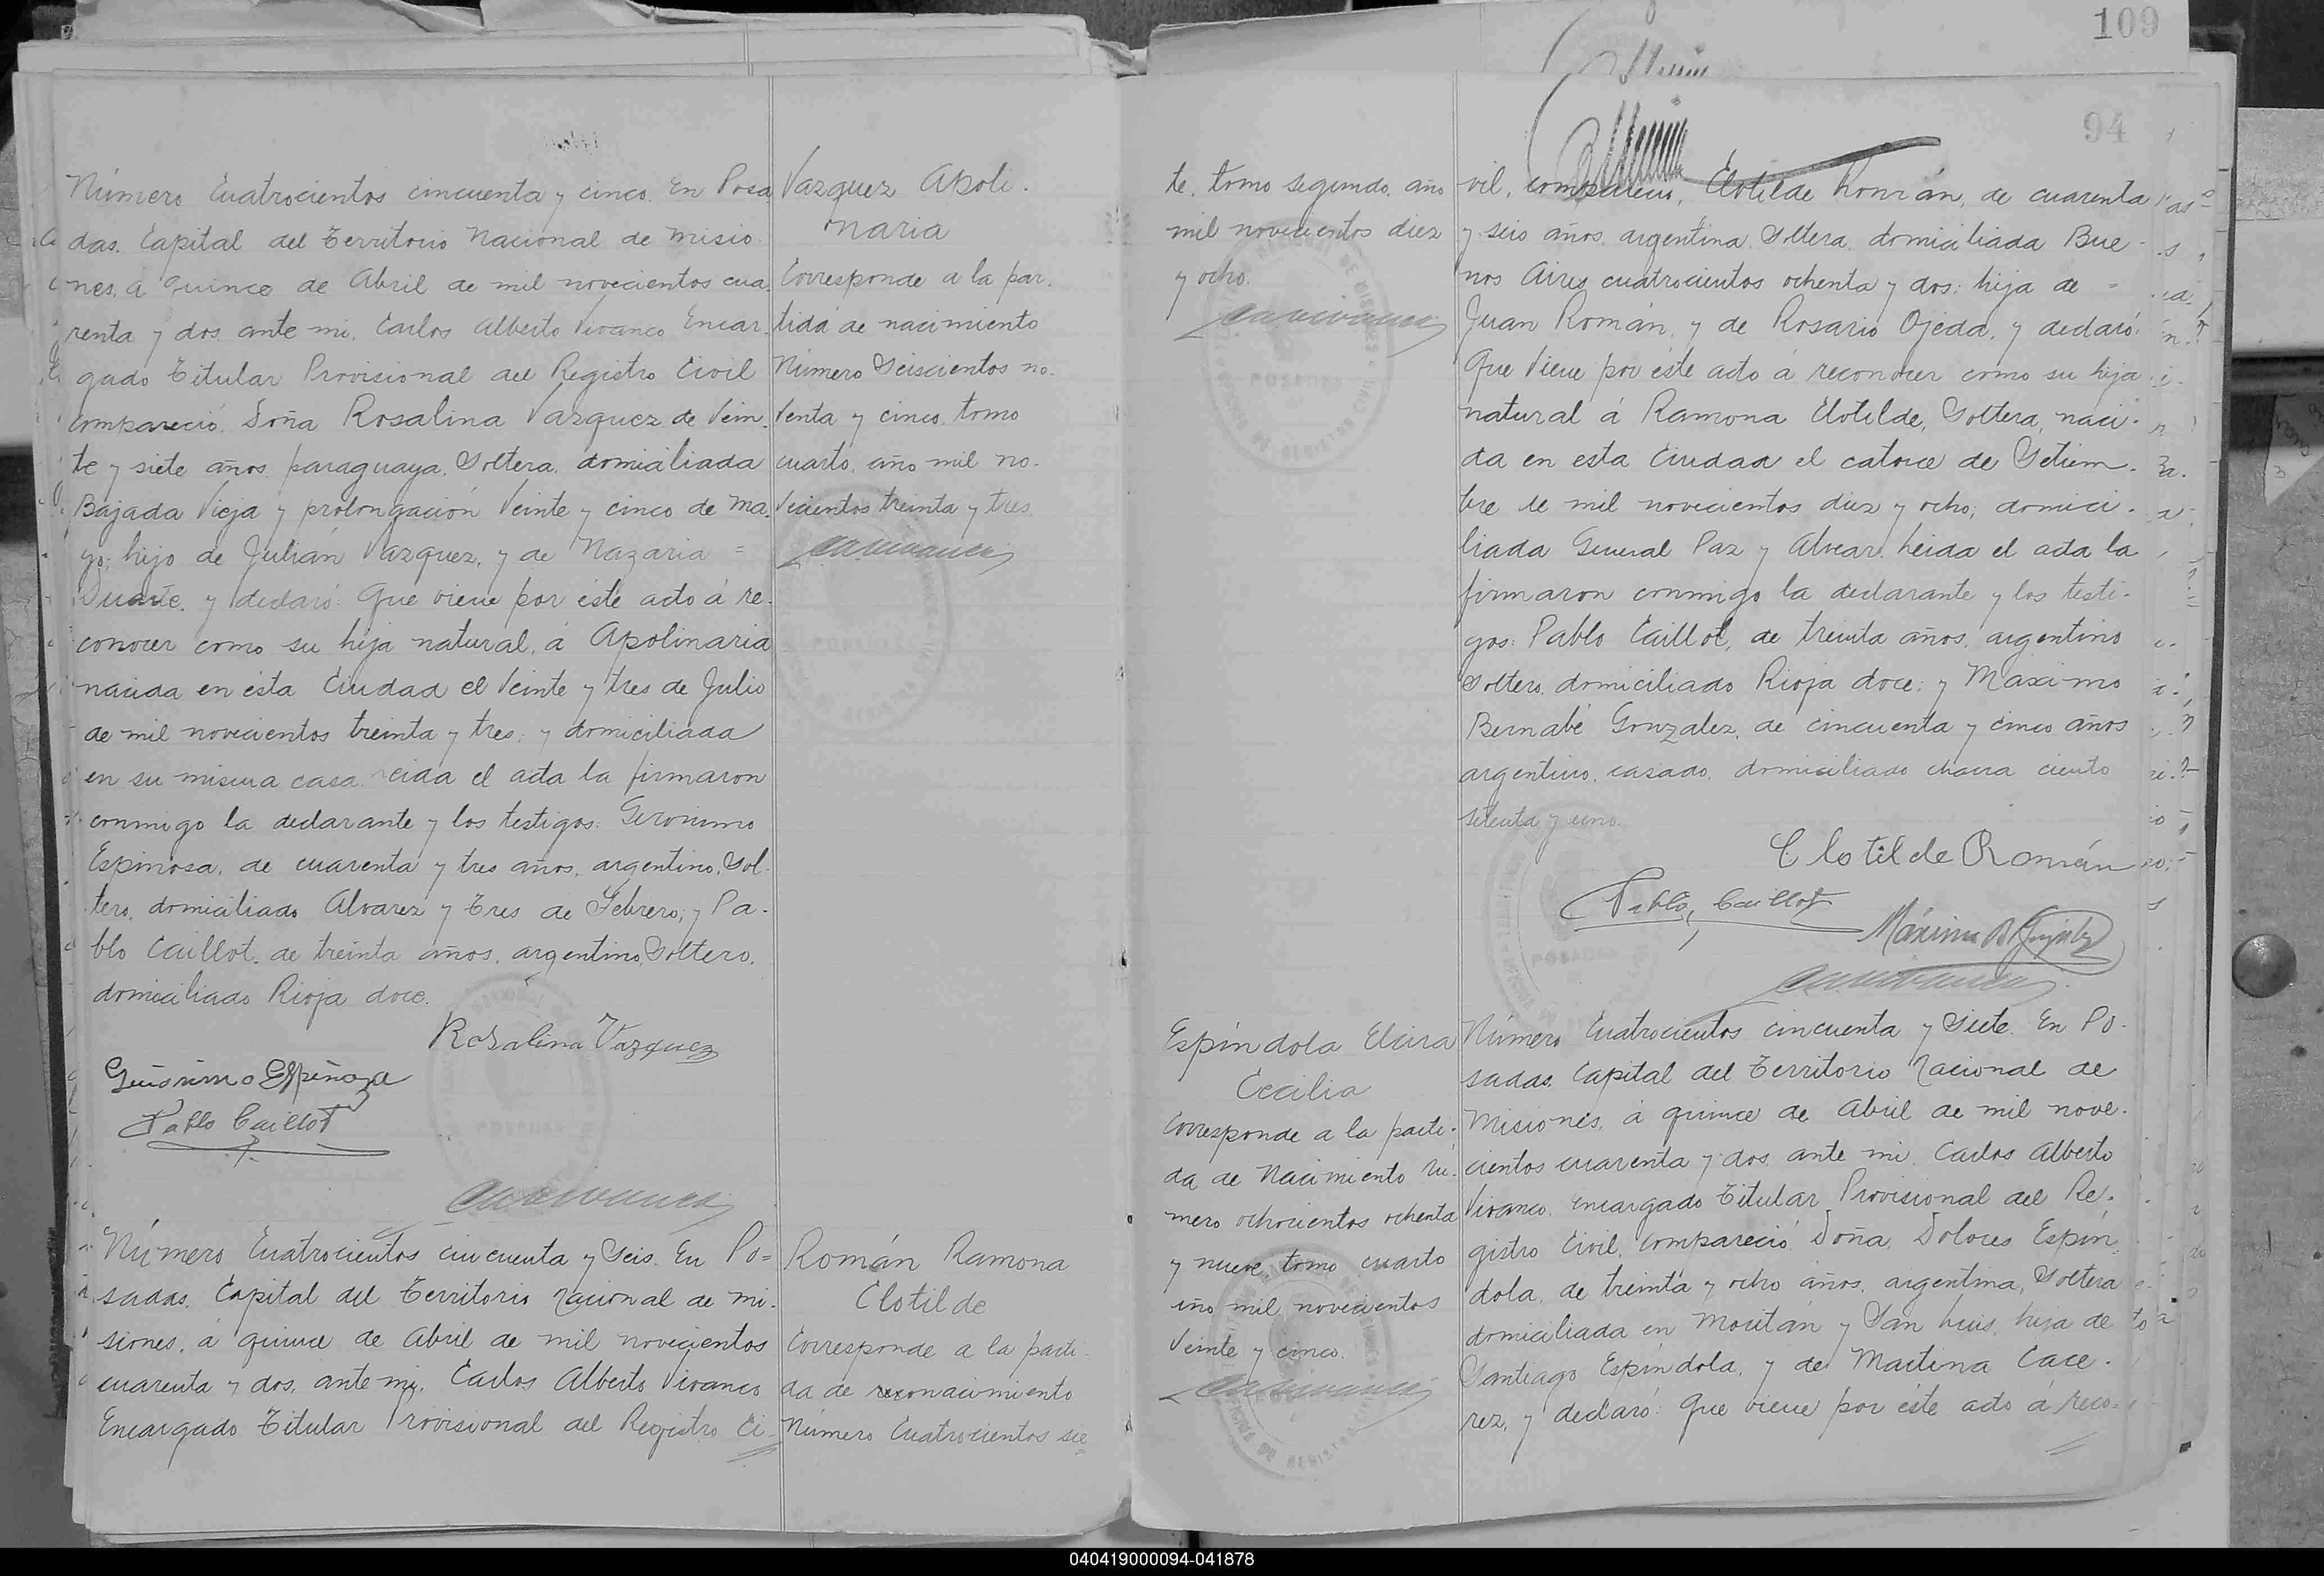 109
94
Número Cuatrocientos cincuenta y cinco. En Posa
das. Capital del Territorio Nacional de Misio
nes, á quince de Abril de mil novecientos cua
renta y dos, ante mi, Carlos Alberto Vivanco Encar
gado Titular Provisional del Registro Civil
compareció Doña Rosalina Vazquez de Vein
te y siete años, paraguaya, Soltera, domiciliada
Bajada Vieja y prolongación Veinte y cinco de Ma
yo; hijo de Julián Vazquez, y de Nazaria =
Duarte, y declaró: Que viene por éste acto á re
conocer como su hija natural, á Apolinaria
nacida en ésta Ciudad el Veinte y tres de Julio
de mil novecientos treinta y tres; y domiciliada
en su misma casa. Leida el acta la firmaron
conmigo la declarante y los testigos: Geronimo
Espinosa, de cuarenta y tres años, argentino, Sol
tero, domiciliado Alvarez y Tres de Febrero; y Pa-
blo Caillot, de treinta años, argentino, Soltero,
domiciliado Rioja doce.
Rosalina Vazquez
Gerónimo Espinoza
Pablo Caillot
Vazquez Apoli-
naria
Corresponde a la par-
tida de nacimiento
Número Seiscientos no-
venta y cinco, tomo
cuarto, año mil no-
vecientos treinta y tres.
Número Cuatrocientos cincuenta y Seis. En Po=
sadas, Capital del Territorio Nacional de Mi-
siones, á quince de Abril de mil novecientos
cuarenta y dos, ante mi, Carlos Alberto Vivanco
Encargado Titular Provisional del Registro Ci=
Román Ramona
Clotilde
Corresponde a la parti-
da de nacimiento
Número Cuatrocientos sie=
te, tomo segundo, año
mil novecientos diez
y ocho.
vil, compareció, Clotilde Román, de cuarenta
y seis años, argentina, Soltera, domiciliada Bue-
nos Aires cuatrocientos ochenta y dos; hija de =
Juan Román, y de Rosario Ojeda, y declaró:
Que Viene por éste acto á reconocer como su hija
natural á Ramona Clotilde, Soltera, naci-
da en esta Ciudad el catorce de Setiem-
bre de mil novecientos diez y ocho; domici-
liada General Paz y Alvear. Leida el acta la
firmaron conmigo la declarante y los testi-
gos: Pablo Caillot, de treinta años, argentino
Soltero, domiciliado Rioja doce; y Maximo
Bernabé Gonzalez, de cincuenta y cinco años
argentino, casado, domiciliado chacra ciento
setenta y uno.
Clotilde Román
Pablo Caillot
Máximo B González
Espíndola Elvira
Cecilia
Corresponde a la parti-
da de Nacimiento Nú-
mero ochocientos ochenta
y nueve, tomo cuarto
año mil novecientos
Veinte y cinco.
Número Cuatrocientos cincuenta y Siete. En Po-
sadas, Capital del Territorio Nacional de
Misiones, á quince de Abril de mil nove-
cientos cuarenta y dos, ante mi, Carlos Alberto
Vivanco, encargado Titular Provisional del Re-
gistro Civil, compareció Doña, Dolores Espín
dola, de treinta y ocho años, argentina, Soltera
domiciliada en Moritán y San Luis, hija de
Santiago Espíndola, y de Martina Cace-
rez, y declaró: Que viene por éste acto á reco=
040419000094-041878